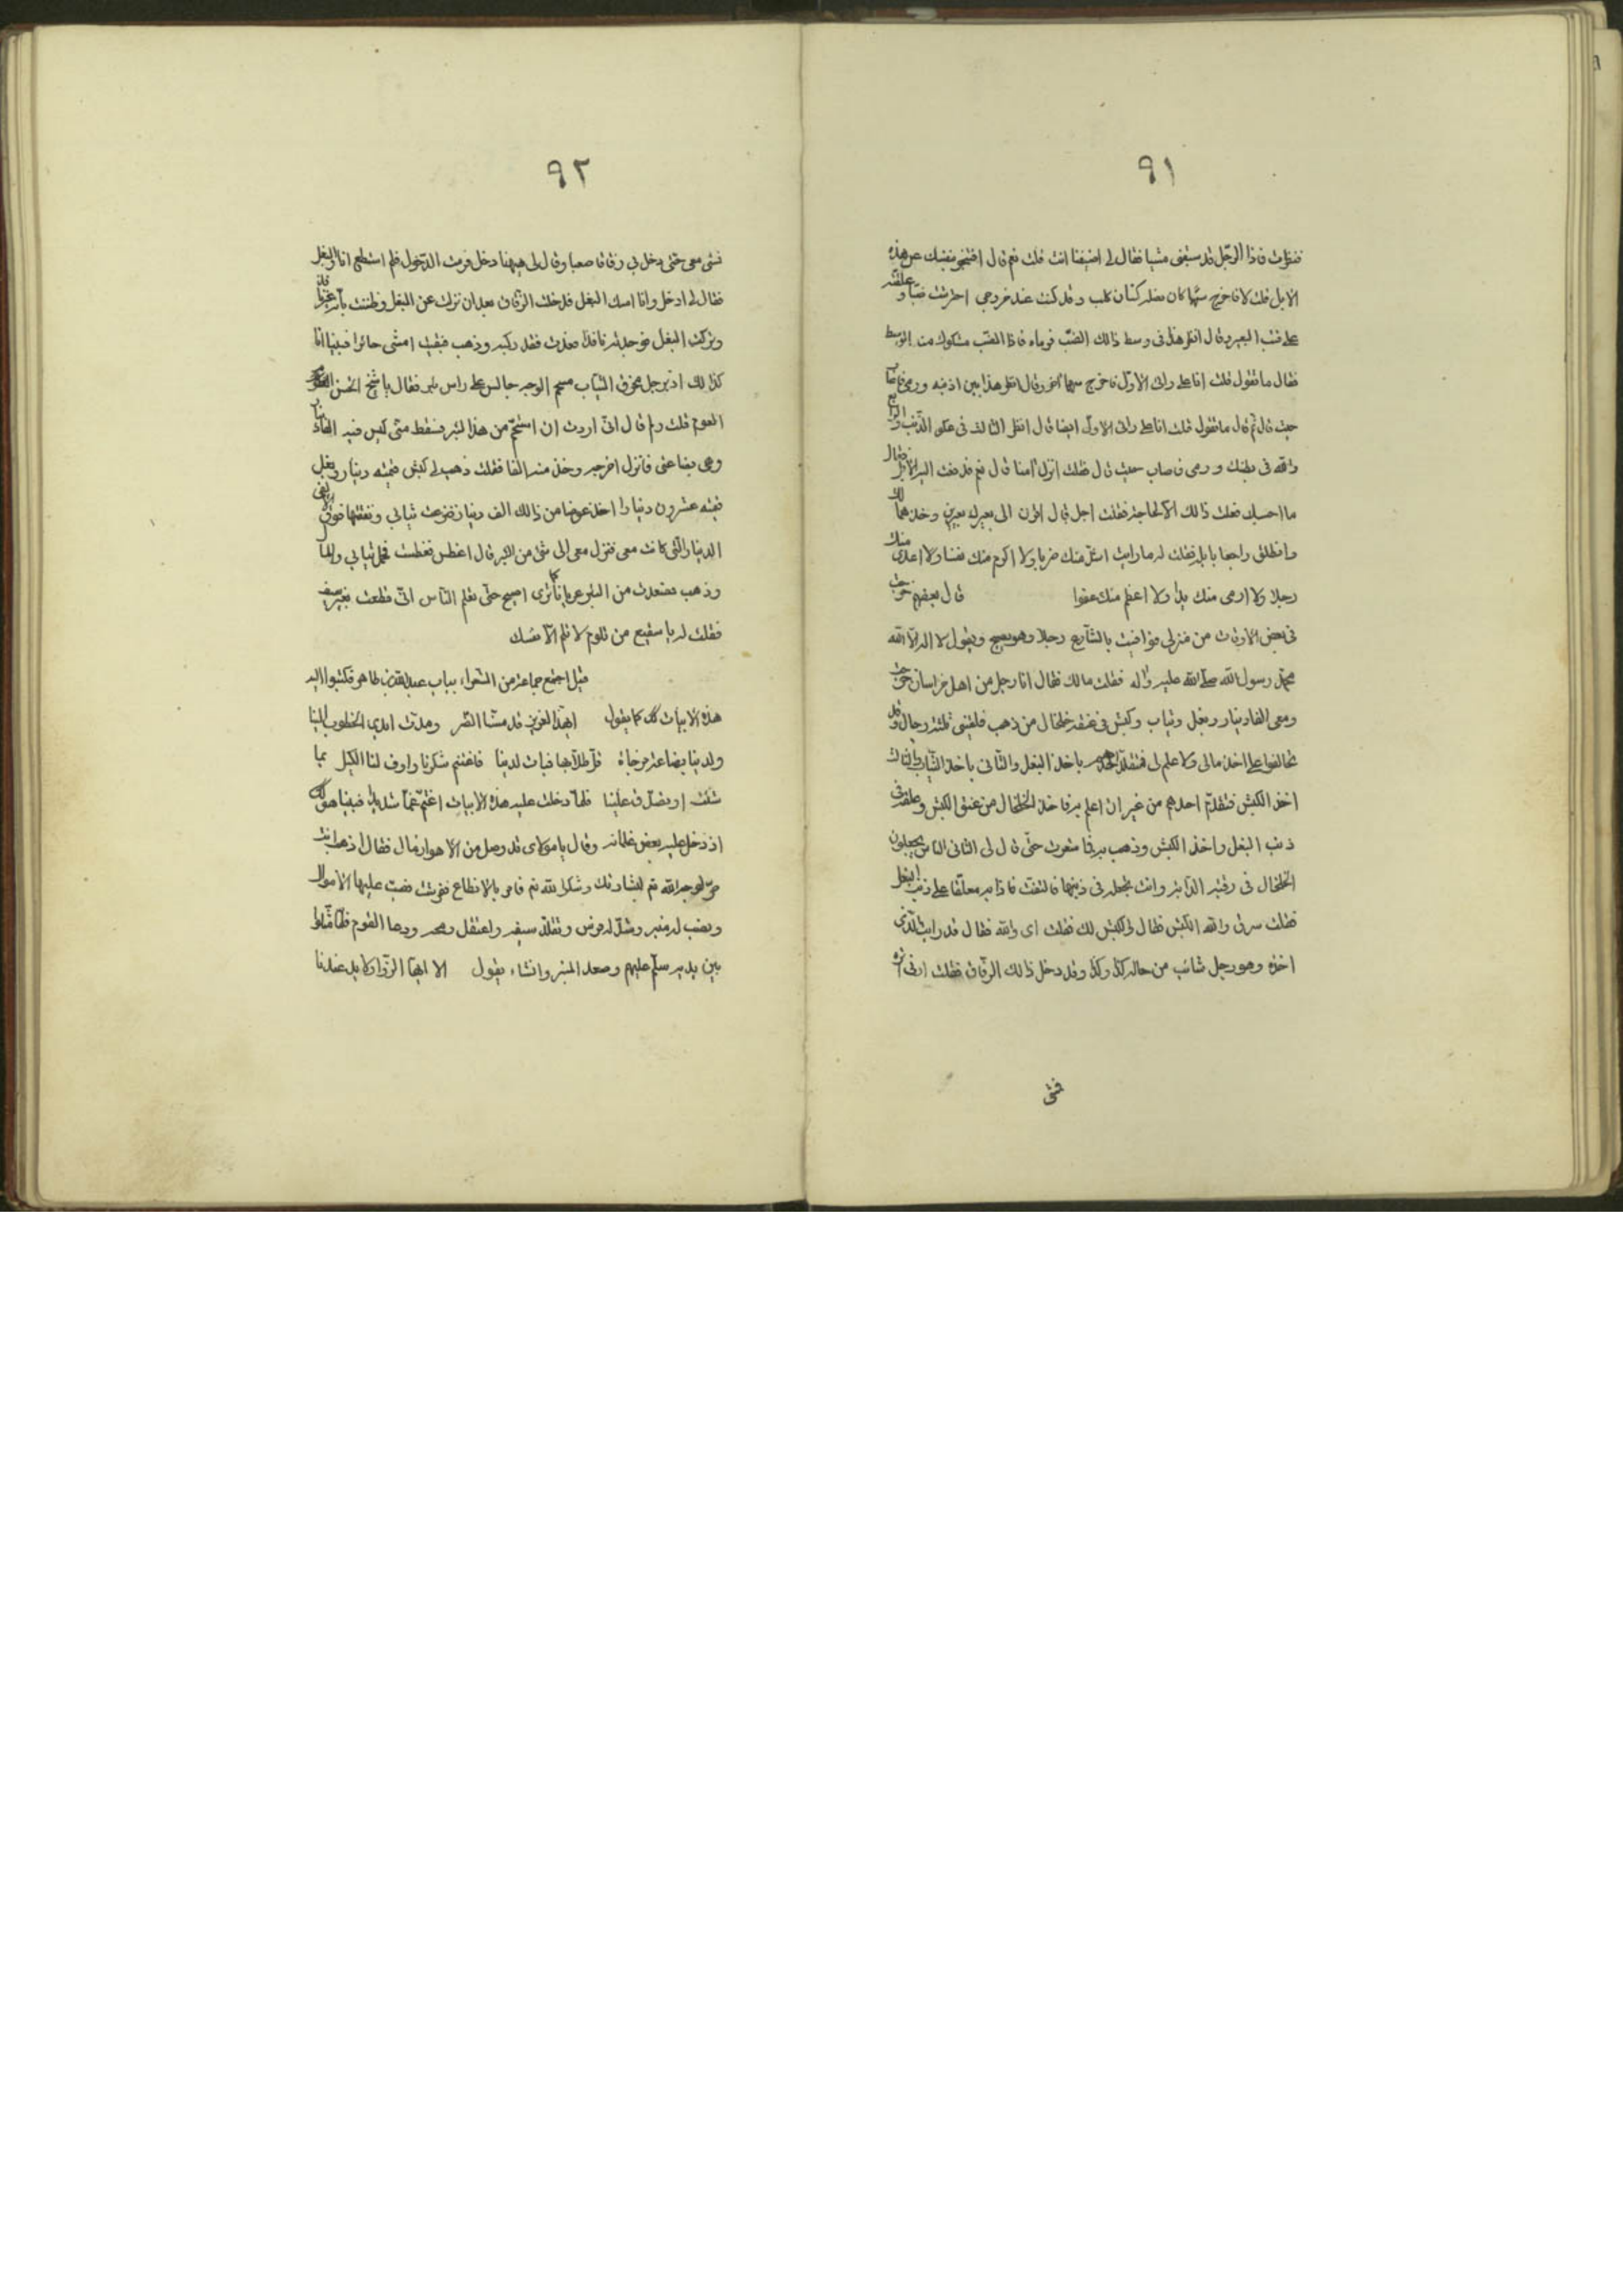 ٩١
فنظرت فاذا الرجل قد سبقني مشيا فقال لي اضيفنا انت قلت نعم قال افتحمي نفسك عن هذه
الابل قلت لا فاخرج سهما كان نصله لسان كلب وقد كنت عند خروجي احترشت ضبا وعلقته
على قتب البعير وقال انظر هذا في وسط ذالك الضب فرماه فاذا الضب مشكوك من الوسط
فقال ما تقول قلت انا على رايى الاول فاخرج سهما آخر وقال انظر هذا بين اذنيه ورمى فاصاب
حيث قال ثم قال ما تقول قلت انا على رايى الاول ايضا قال انظر الثالث في عكو الذنب والرابع
والله في بطنك ورمى فاصاب حيث قال فقلت انزل آمنا قال نعم فدفعت اليه الابل فقال
ما احسبك فعلت ذالك الا لحاجة فقلت اجل قال اقرن الى بعيرك بعيرين وخذهما لك
وانطلق راجعا بابله فقلت له ما رايت اشد منك ضربا ولا اكرم منك نفسا ولا اعدى منك
رجلا ولا ارمى منك يدا ولا اعظم منك عفوا قال بعضهم خرجت
في بعض الاوقات من منزلى فوافيت بالشارع رجلا وهو يصيح ويقول لا اله الا الله
محمد رسول الله صلى الله عليه وآله فقلت مالك فقال انا رجل من اهل خراسان خرجت
ومعى الفا دينار وبغل وثياب وكبش في عنقه خلخال من ذهب فلقيني ثلثة رجال وقد
تحالفوا على اخذ مالى ولا علم لى فتقلد احدهم باخذ البغل والثانى باخذ الثياب والثالث
اخذ الكبش فتقدم احدهم من غير ان اعلم به فاخذ الخلخال من عنق الكبش وعلقه في
ذنب البغل واخذ الكبش وذهب به فما شعرت حتى قال لى الثانى الناس يجعلون
الخلخال في رقبة الدابة وانت تجعله في ذنبها فالتفت فاذا به معلقا على ذنب البغل
فقلت سرق والله الكبش فقال لى الكبش لك فقلت اى والله فقال قد رايت الذى
اخذه وهو رجل شائب من حاله كذا وكذا وقد دخل ذالك الزقاق فقلت ارني اثره
فمشى
٩٢
فمشى معى حتى دخل بى زقاقا صعبا وقال لى ههنا دخل فرمت الدخول فلم استطع انا والبغل
فقال لى ادخل وانا امسك البغل فدخلت الزقاق بعد ان نزلت عن البغل وظننت بانه
وتركت البغل فوجدته نافذا فعدت فقد ركبه وذهب فبقيت امشى حائرا فبينا انا
كذالك اذ برجل مخرق الثياب مسخم الوجه جالس على راس بئر فقال يا شيخ
العوم قلت ولم قال انى اردت ان استحم من هذا البئر فسقط منى كيس فيه الفا دينار
وهى بضاعتى فانزل اخرجه وخذ منه الفا فقلت ذهب لى كبش قيمته دينار وبغل
قيمته عشرون دينارا اخذ عوضا من ذالك الف دينار فنزعت ثيابى ونفقتها فوق
الدينار التى كانت معى فنزل معى الى شق من البئر قال اغطس فغطست فحمل ثيابى والالفا
وذهب فصعدت من البئر عريانا كما ترى اصيح حتى يعلم الناس انى قطعت بغير سيف
فقلت له يا سقيع من تلوم لا تلم الا نفسك
قيل اجتمع جماعة من الشعراء بباب عبدالله بن طاهر فكتبوا اليه
هذه الابيات كل كما يقول ايهذا العزيز قد مسنا الضر ومدت ايدى الخطوب الينا
ولدينا بضاعة مزجاة قل طلابها فباتت لدينا فاغتنم شكرنا واوف لنا الكيل بما
شئت او تصدق علينا فلما دخلت عليه هذه الابيات اغتم غما شديدا فبينا هو كذلك
اذ دخل عليه بعض غلمانه وقال يا مولاى قد وصل من الاهواز مال فقال اذهب انت
حر لوجه الله ثم لبشارتك وشكرا لله ثم فامر بالانطاع ففرشت فصبت عليها الاموال
ونصب له منبر وشد له فرس وتقلد سيفه واعتقل رمحه ودعا القوم فلما مثلوا
بين يديه سلم عليهم وصعد المنبر وانشاء يقول الا ايها الزوار لا يد عندنا